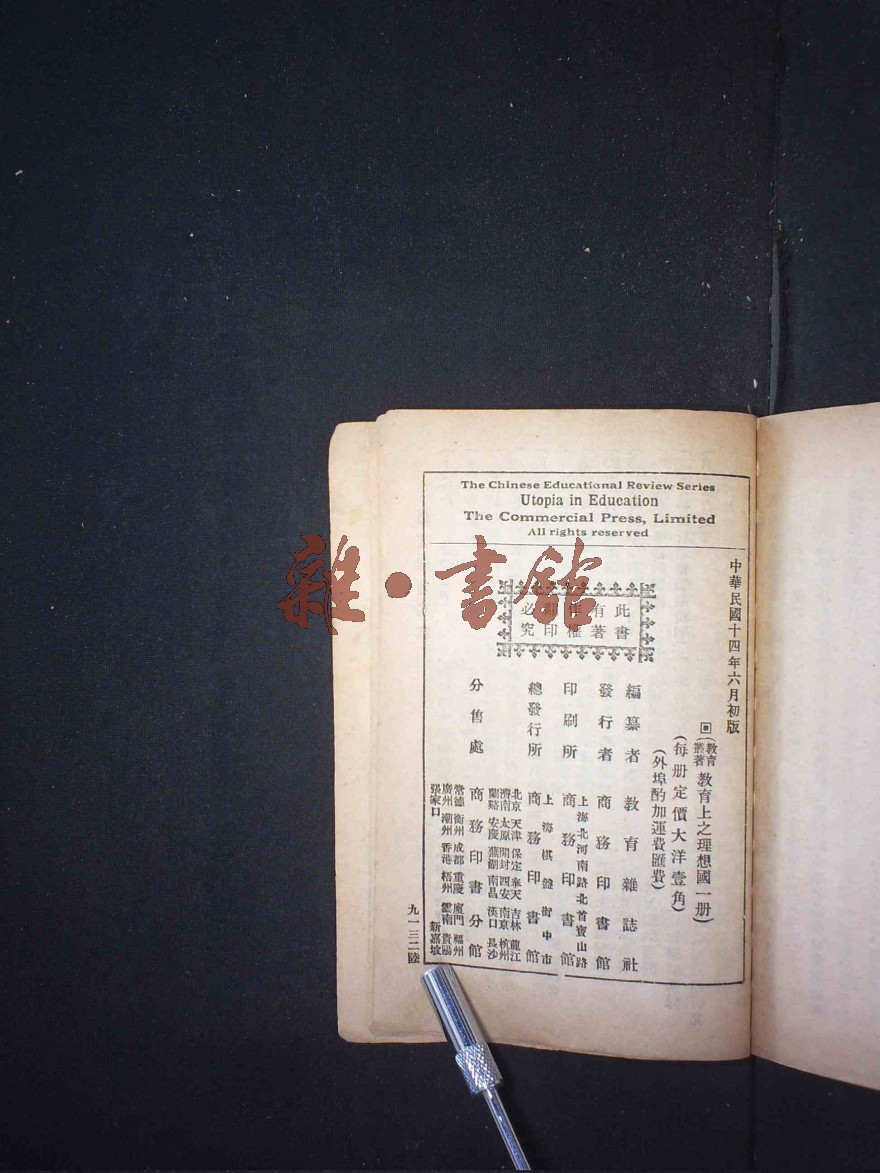 The Chinese Educational Review Series
Utopia in Education
The Commercial Press, Limited
All rights reserved
中華民國十四年六月初版
(教育叢著 教育上之理想國一册)
(每册定價大洋壹角)
(外埠酌加運費匯費)
此書
有著
作權
翻印
必究
編纂者 教育雜誌社
發行者 商務印書館
上海北河南路北首寶山路
印刷所 商務印書館
上海棋盤街中市
總發行所 商務印書館
分售處
北京 天津 保定 奉天 吉林 龍江
濟南 太原 開封 西安 南京 杭州
蘭谿 安慶 蕪湖 南昌 漢口 長沙
商務印書分館
常德 衡州 成都 重慶 廈門 福州
廣州 潮州 香港 梧州 雲南 貴陽
張家口 新嘉坡
九一三二陸
雜·書館